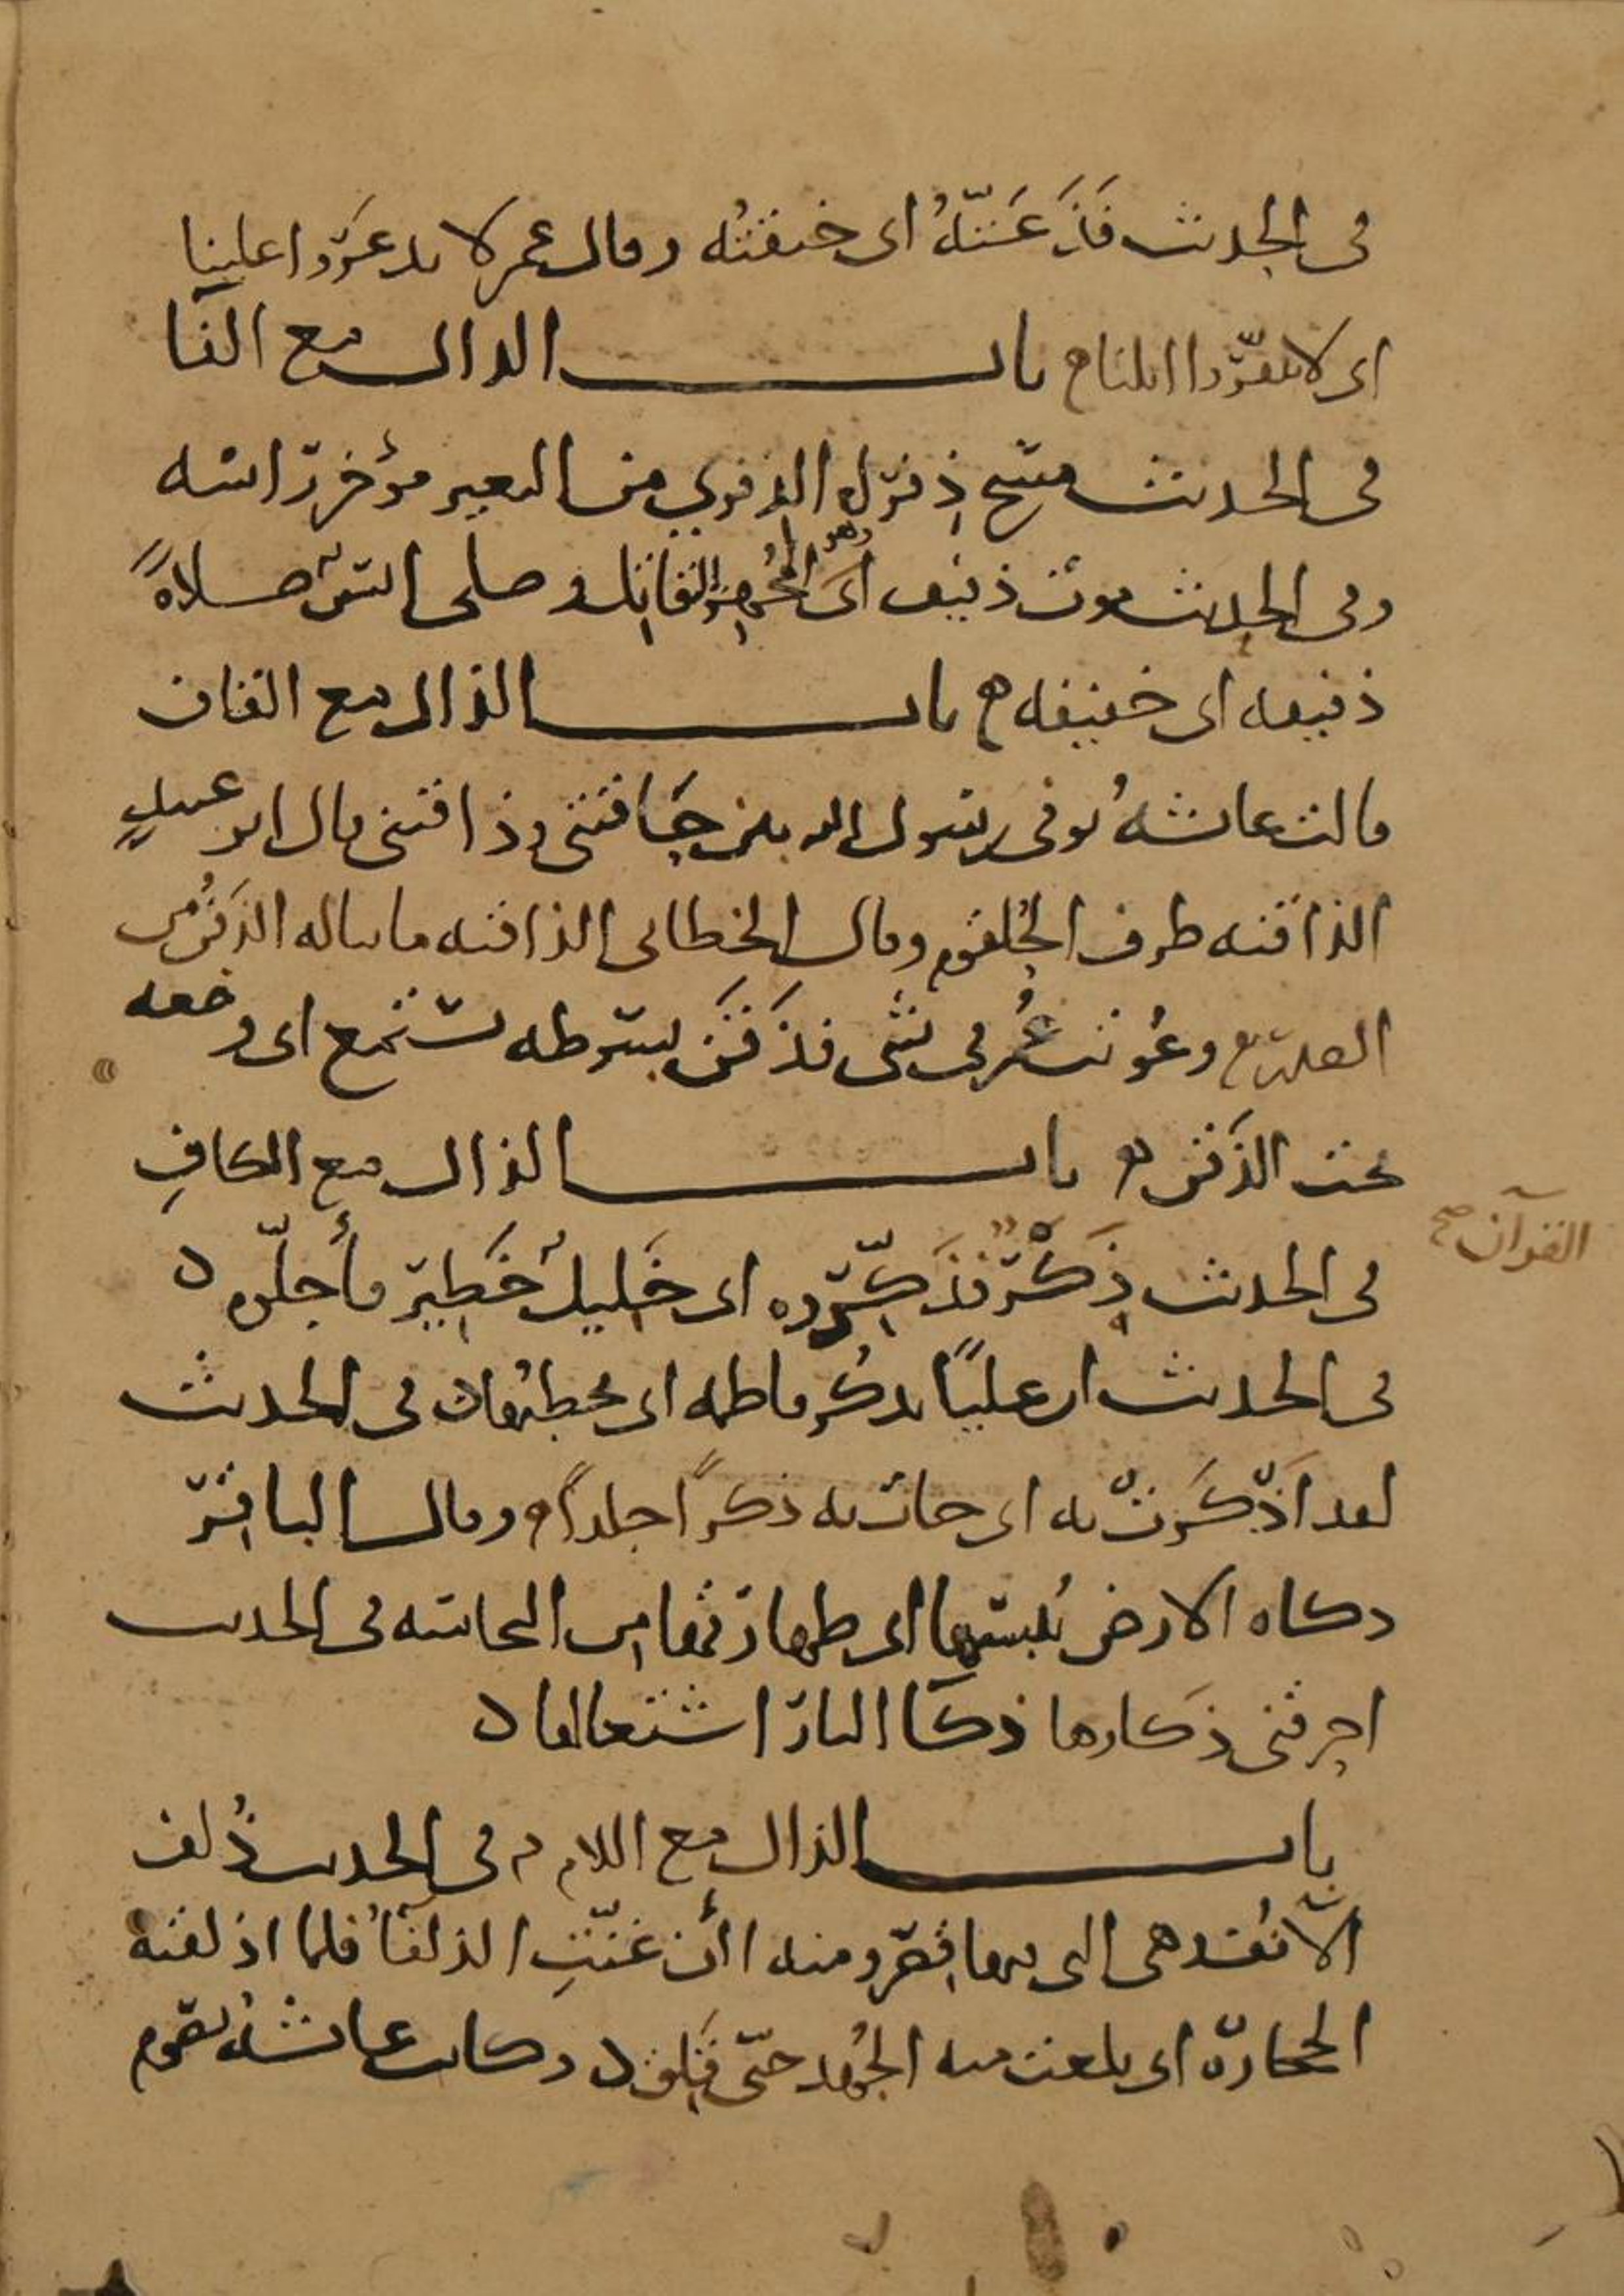 في الحديث فَذَعَتُّهُ اى خنقتُه وقال عمر لا تذعَرُوا علينا
اى لا تنفّروا ابلنا باب الذال مع الفَا
في الحديث مسَح ذِفرَاه الذفرى من البعير مؤخر رَاسه
وفي الحديث موت ذفيف اى المُجهِز وهو القاتل وصلى انسٌ صلاةً
ذفيفه اى خفيفه باب الذال مع القاف
قالت عائشهُ توفي رسول الله بين حَاقنتى وذاقنتى قال ابو عبيد
الذاقنه طرف الحُلقوم وقال الخطابى الذاقنه ما يناله الذَقنُ من
الصدر وعُوتب عُمر في شى فذَقَنَ بسَوطه يستمع اى وضعه
تحت الذَقن باب الذال مع الكافِ
القرآن صح
في الحديث ذَكَرٌ فذَكِّروه اى جَليلٌ خَطِيرٌ فأجلّوه
في الحديث ان عليًا يذكُر فاطمه اى يخطبُها في الحديث
لقد اَذكَرَتْ به اى جات به ذكرًا جلدًا وقال الباقرُ
ذكاه الارض يُبسُها اى طهارتُها من النجاسه في الحديث
احرقنى ذكاوها ذكَا النار اشتعالها
باب الذال مع اللام في الحديث ذُلف
الآنُف هى التى فيها قِصَر ومنه اأن غنّتِ الذلفَآُ فلما اذلقته
الحجارة اى بلغت منه الجُهد حتى قَلِق وكانت عائشهُ تصوم